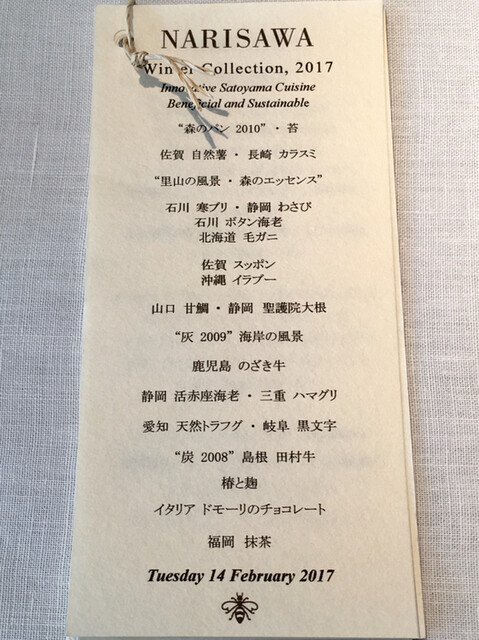 NARISAWA
Winter Collection, 2017
Innovative Satoyama Cuisine
Beneficial and Sustainable
“森のパン 2010”・苔
佐賀 自然薯・長崎 カラスミ
“里山の風景・森のエッセンス”
石川 寒ブリ・静岡 わさび
石川 ボタン海老
北海道 毛ガニ
佐賀 スッポン
沖縄 イラブー
山口 甘鯛・静岡 聖護院大根
“灰 2009” 海岸の風景
鹿児島 のざき牛
静岡 活赤座海老・三重 ハマグリ
愛知 天然トラフグ・岐阜 黒文字
“炭 2008” 島根 田村牛
椿と麹
イタリア ドモーリのチョコレート
福岡 抹茶
Tuesday 14 February 2017